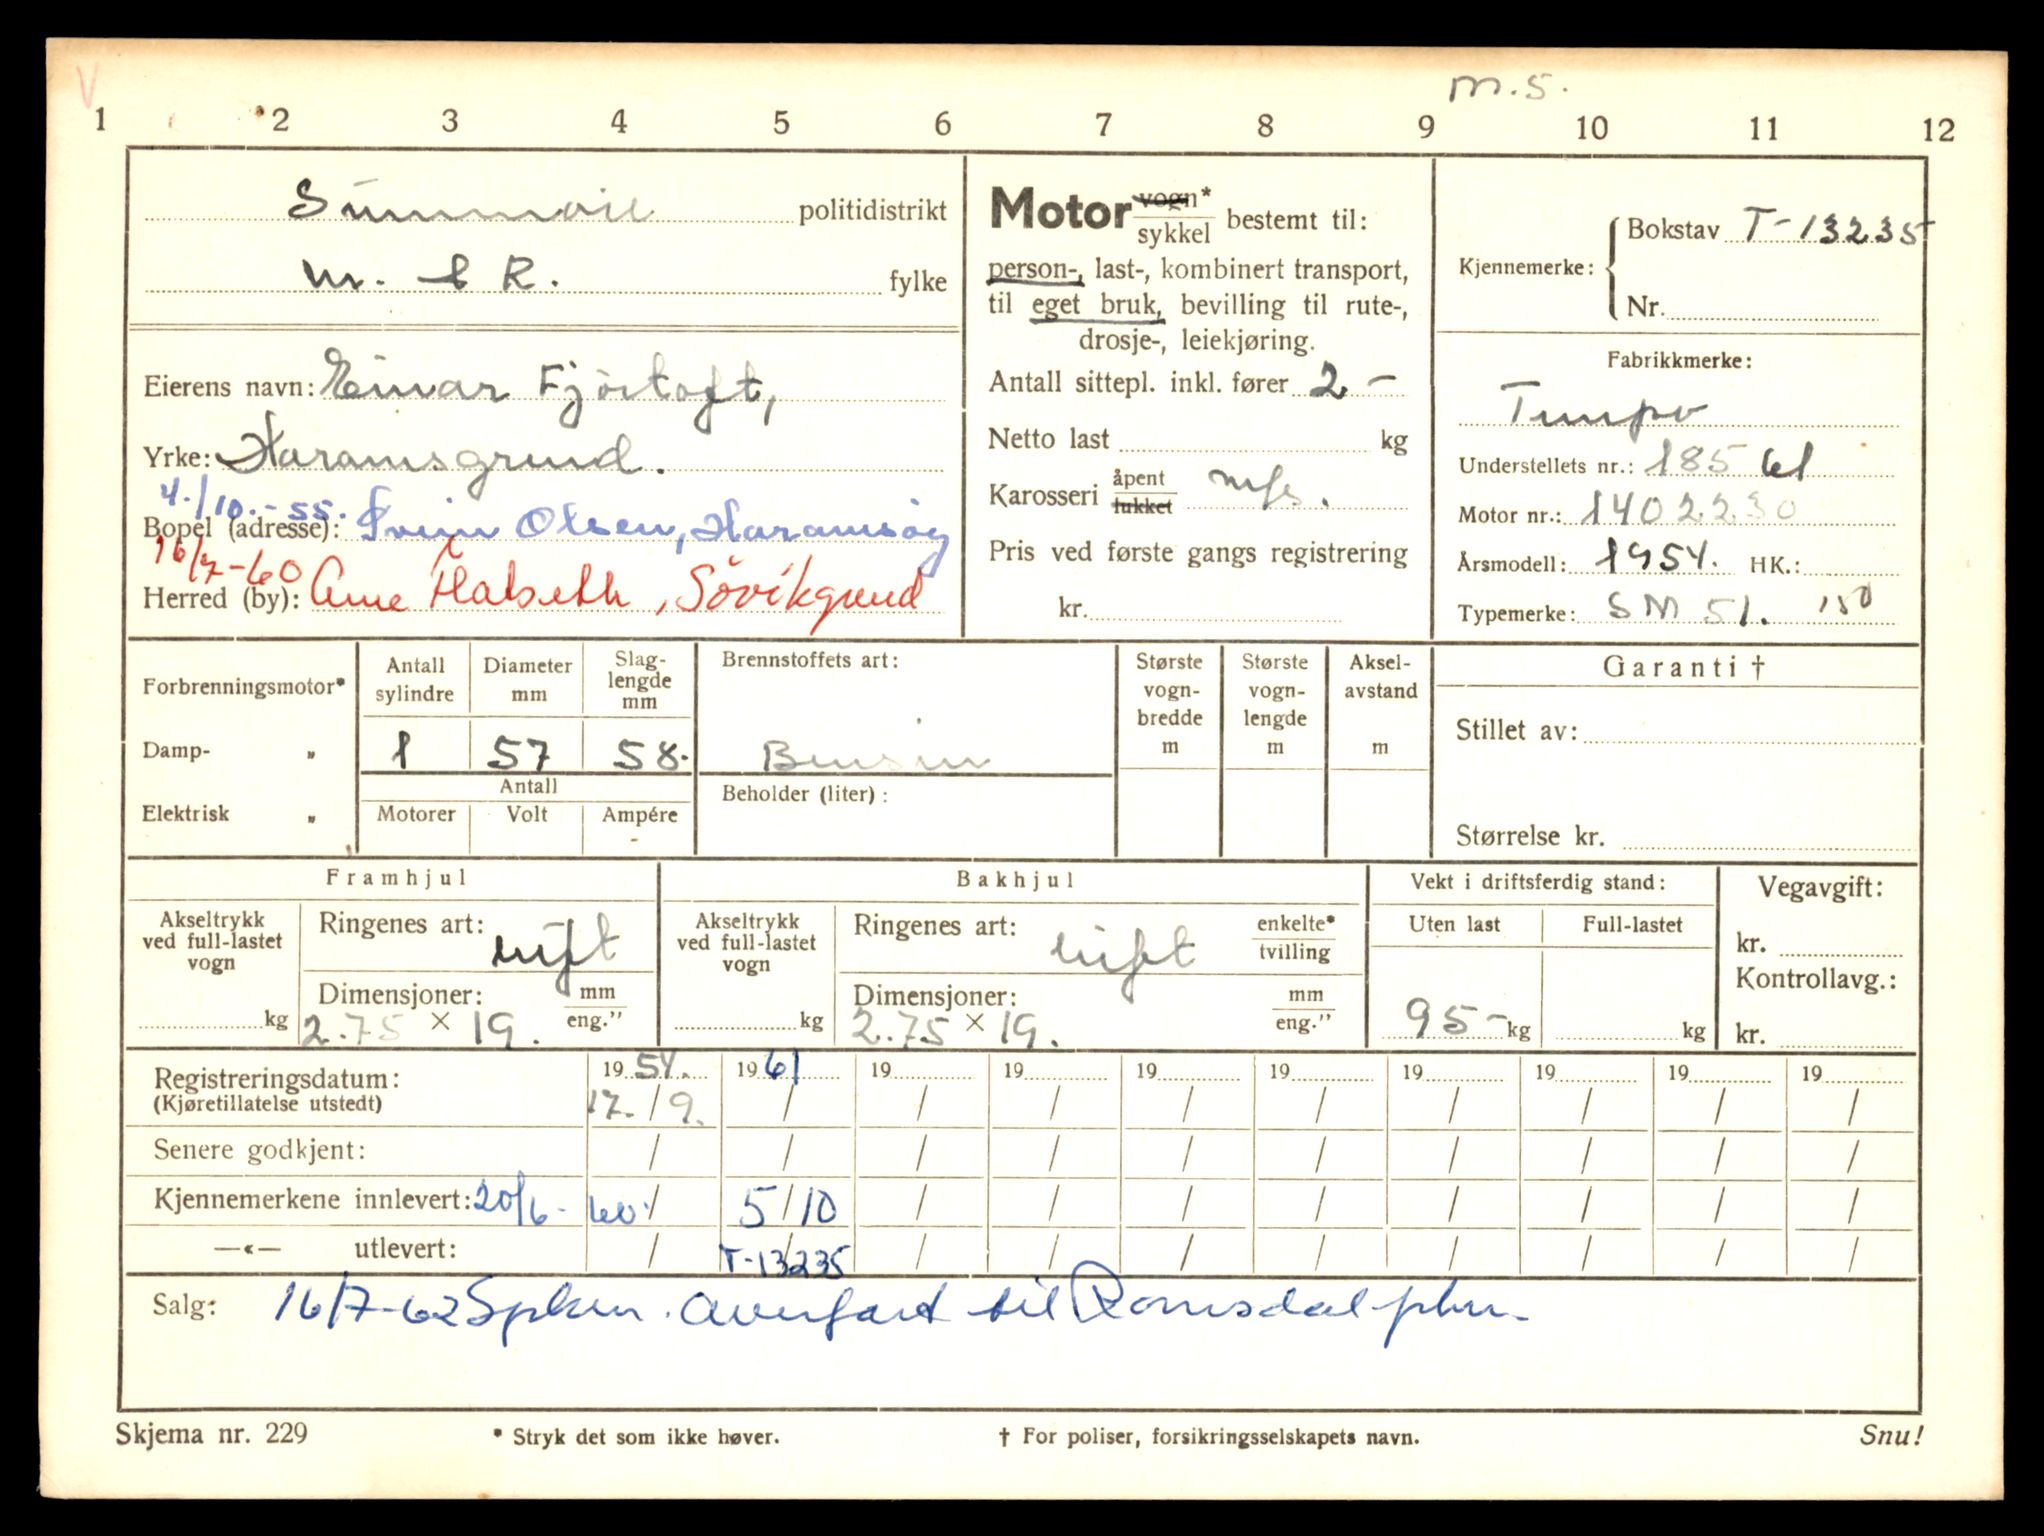 m.s.
1 2 3 4 5 6 7 8 9 10 11 12
V
Sunnmøre politidistrikt
M. & R. fylke
Eierens navn: Einar Fjörtoft,
Yrke: Haramsgrund.
4./10.-55.
Bopel (adresse): Svein Olsen, Haramsøy
16/7-60
Herred (by): Arne Hatseth, Sövikgrend
Motor vogn*/sykkel bestemt til:
person-, last-, kombinert transport,
til eget bruk, bevilling til rute-,
drosje-, leiekjøring.
Antall sittepl. inkl. fører 2 -
Netto last kg
Karosseri åpent/lukket mfs.
Pris ved første gangs registrering
kr.
Kjennemerke: Bokstav T-13235
Nr.
Fabrikkmerke:
Tempo
Understellets nr.: 18561
Motor nr.: 1402230
Årsmodell: 1954. HK.:
Typemerke: SM 51. 150
Forbrenningsmotor*
Damp- „
Elektrisk „
Antall sylindre
1
Diameter mm
57
Slag-lengde mm
58.
Antall
Motorer Volt Ampére
Brennstoffets art:
Bensin
Beholder (liter):
Største vogn-bredde m
Største vogn-lengde m
Aksel-avstand m
Garanti †
Stillet av:
Størrelse kr.
Framhjul
Akseltrykk ved full-lastet vogn
kg
Ringenes art: luft
Dimensjoner: mm/eng."
2.75 × 19.
Bakhjul
Akseltrykk ved full-lastet vogn
kg
Ringenes art: luft enkelte*/tvilling
Dimensjoner: mm/eng."
2.75 × 19.
Vekt i driftsferdig stand:
Uten last Full-lastet
95- kg kg
Vegavgift:
kr.
Kontrollavg.:
kr.
Registreringsdatum: 1954. 1961 19 19 19 19 19 19 19 19
(Kjøretillatelse utstedt) 17./9. / / / / / / / / /
Senere godkjent: / / / / / / / / / /
Kjennemerkene innlevert: 20/6-60. / 5/10 / / / / / / / /
—«— utlevert: / T-13235 / / / / / / / /
Salg: 16/7-62 Spkm. overført til Romsdal pkm.
Skjema nr. 229
* Stryk det som ikke høver.
† For poliser, forsikringsselskapets navn.
Snu!